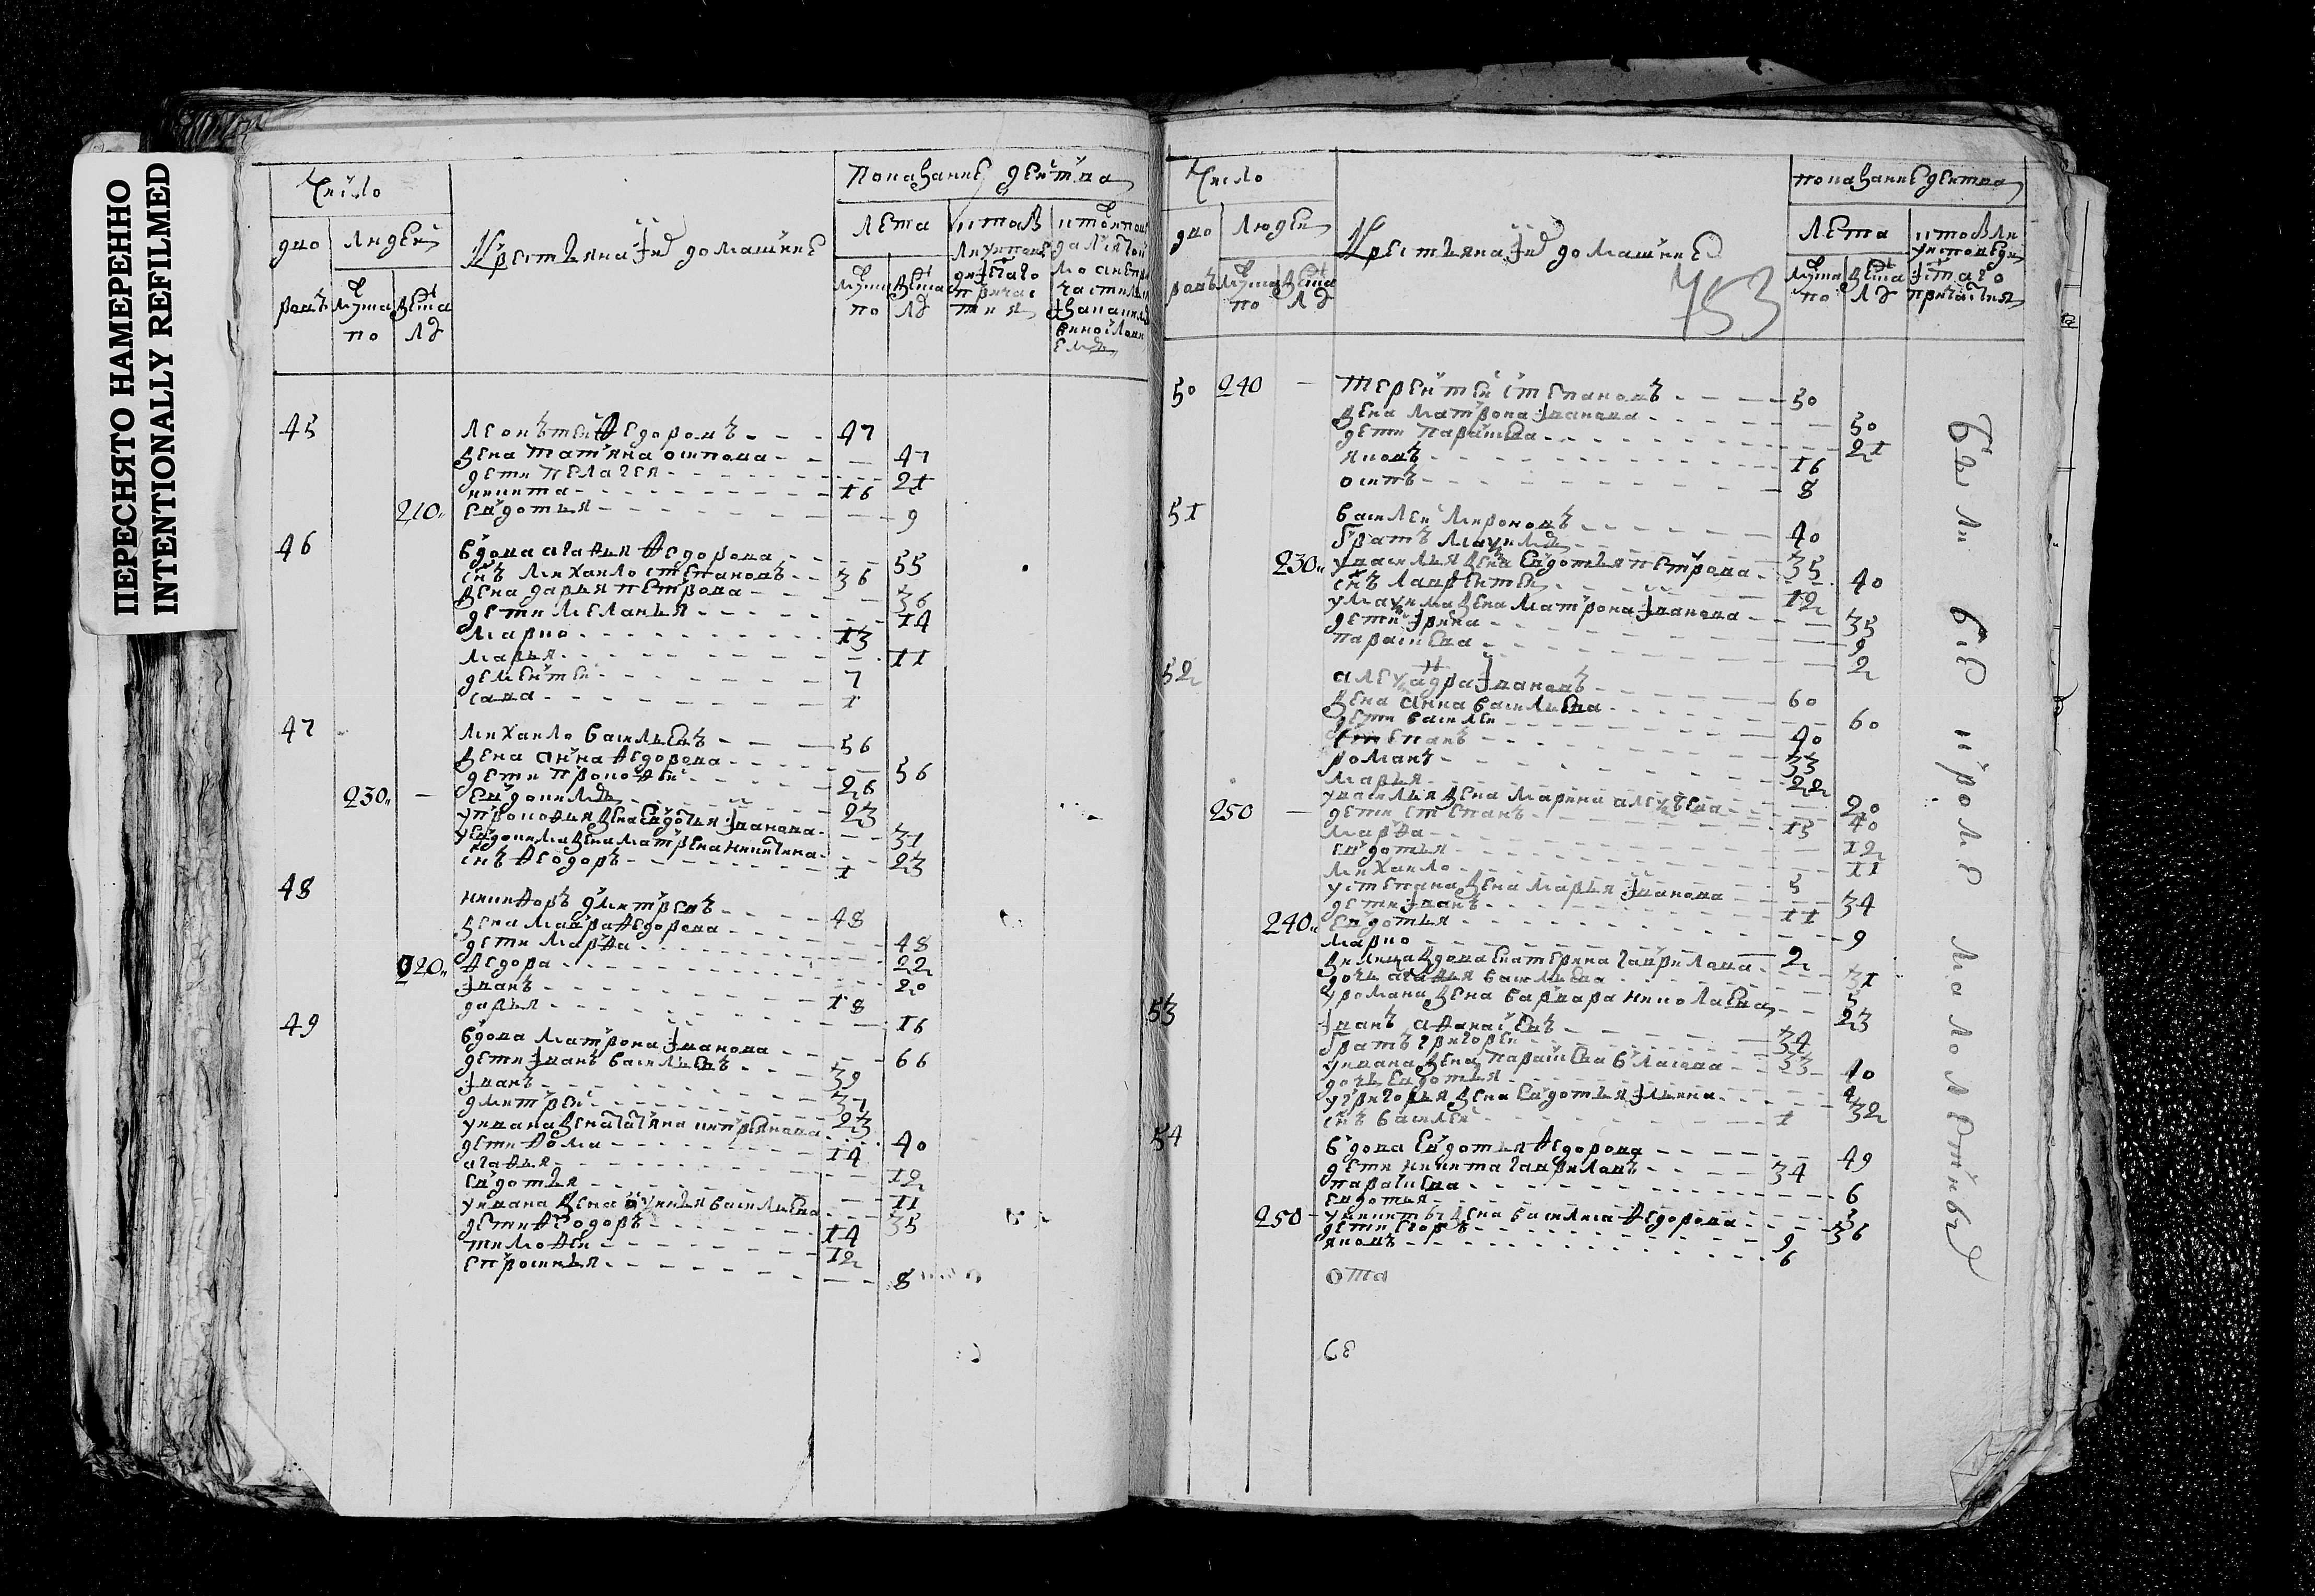 ПЕРЕСНЯТО НАМЕРЕННО
INTENTIONALLY REFILMED
Число
дво
ровъ
людей
мужеска
по
женска
лъ
Крестьяна и их домашние
показание действа
Лета
мужеска
по
женска
лъ
45 леонътей федоровъ 47
жена татъяна осипова 47
дети пелагея 21
никита 16
210 евдотья 9
46 вдова агафья федорова 55
снъ михаило степановъ 36
жена дарья петрова 36
дети меланья 14
марко 13
марья 11
дементеи 7
сава 1
47 михаило васильевъ 56
жена анна федорова 56
дети прокофеи 26
230 евдоким 23
у прокофья жена евдотья иванова 31
у евдокима жена матрена никитина 23
снъ феодоръ 1
48 никифоръ дмитревъ 48
жена мавра федорова 48
дети марфа 22
220 федора 20
иванъ 18
дарья 16
49 вдова матрона иванова 66
дети иванъ васильевъ 39
иванъ 37
дмитреи 23
у ивана жена татяна киприянова 40
дети фома 14
агафья 12
евдотья 11
у ивана жена акулина васильева 35
дети феодоръ 14
тимофеи 12
епросинья 8
Число
дво
ровъ
людей
мужеска
по
женска
лъ
Крестьяна и их домашние
753
показание действа
Лета
мужеска
по
женска
лъ
50 240 терентеи степановъ 50
жена матрона иванова 50
дети параскева 21
яковъ 16
осипъ 8
51 василеи мироновъ 40
братъ маѯим 35
230 у василья жена евдотья петрова 40
снъ лаврентеи 12
у маѯима жена матрона иванова 35
дети ирина 9
параскева 2
52 алеѯандра ивановъ 60
жена анна васильева 60
дети василеи 40
степанъ 33
романъ 22
марья 20
у василья жена марина алеѯеева 40
250 дети степанъ 15
марфа 12
евдотья 11
михаило 5
у степана жена марья иванова 34
дети иванъ 11
240 евдотья 9
марко 2
жилица вдова екатерина гаврилова 31
дочь агафья васильева 5
у романа жена варвара николаева 23
53 иванъ афанасьевъ 34
братъ григореи 33
у ивана жена параскева власова 40
дочь евдотья 4
у григорья жена евдотья ильина 32
снъ василеи 1
54 вдова евдотья федорова 49
дети никита гавриловъ 34
параскева 6
евдотья 3
250 у никиты жена василиса федорова 36
дети егоръ 9
яковъ 6
были все кроме малолетных